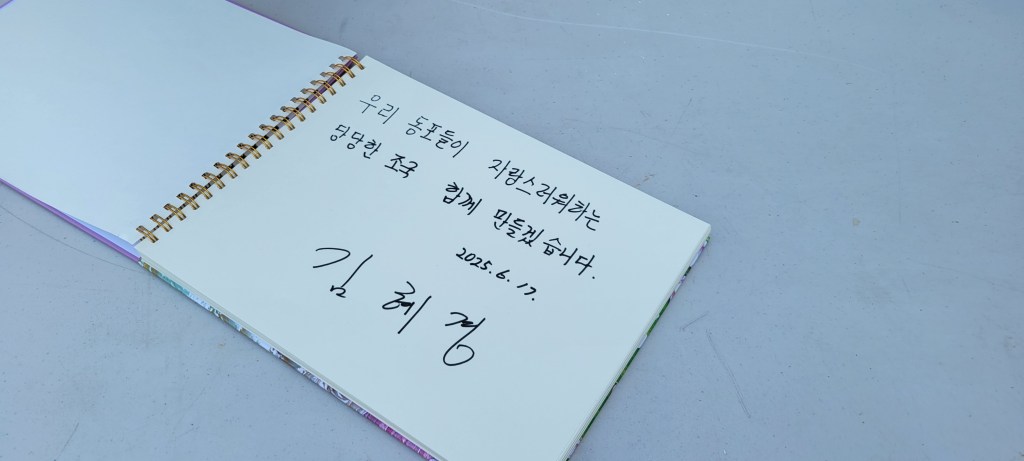 우리 동포들이 자랑스러워하는
당당한 조국 함께 만들겠습니다.
2025. 6. 17.
김혜경